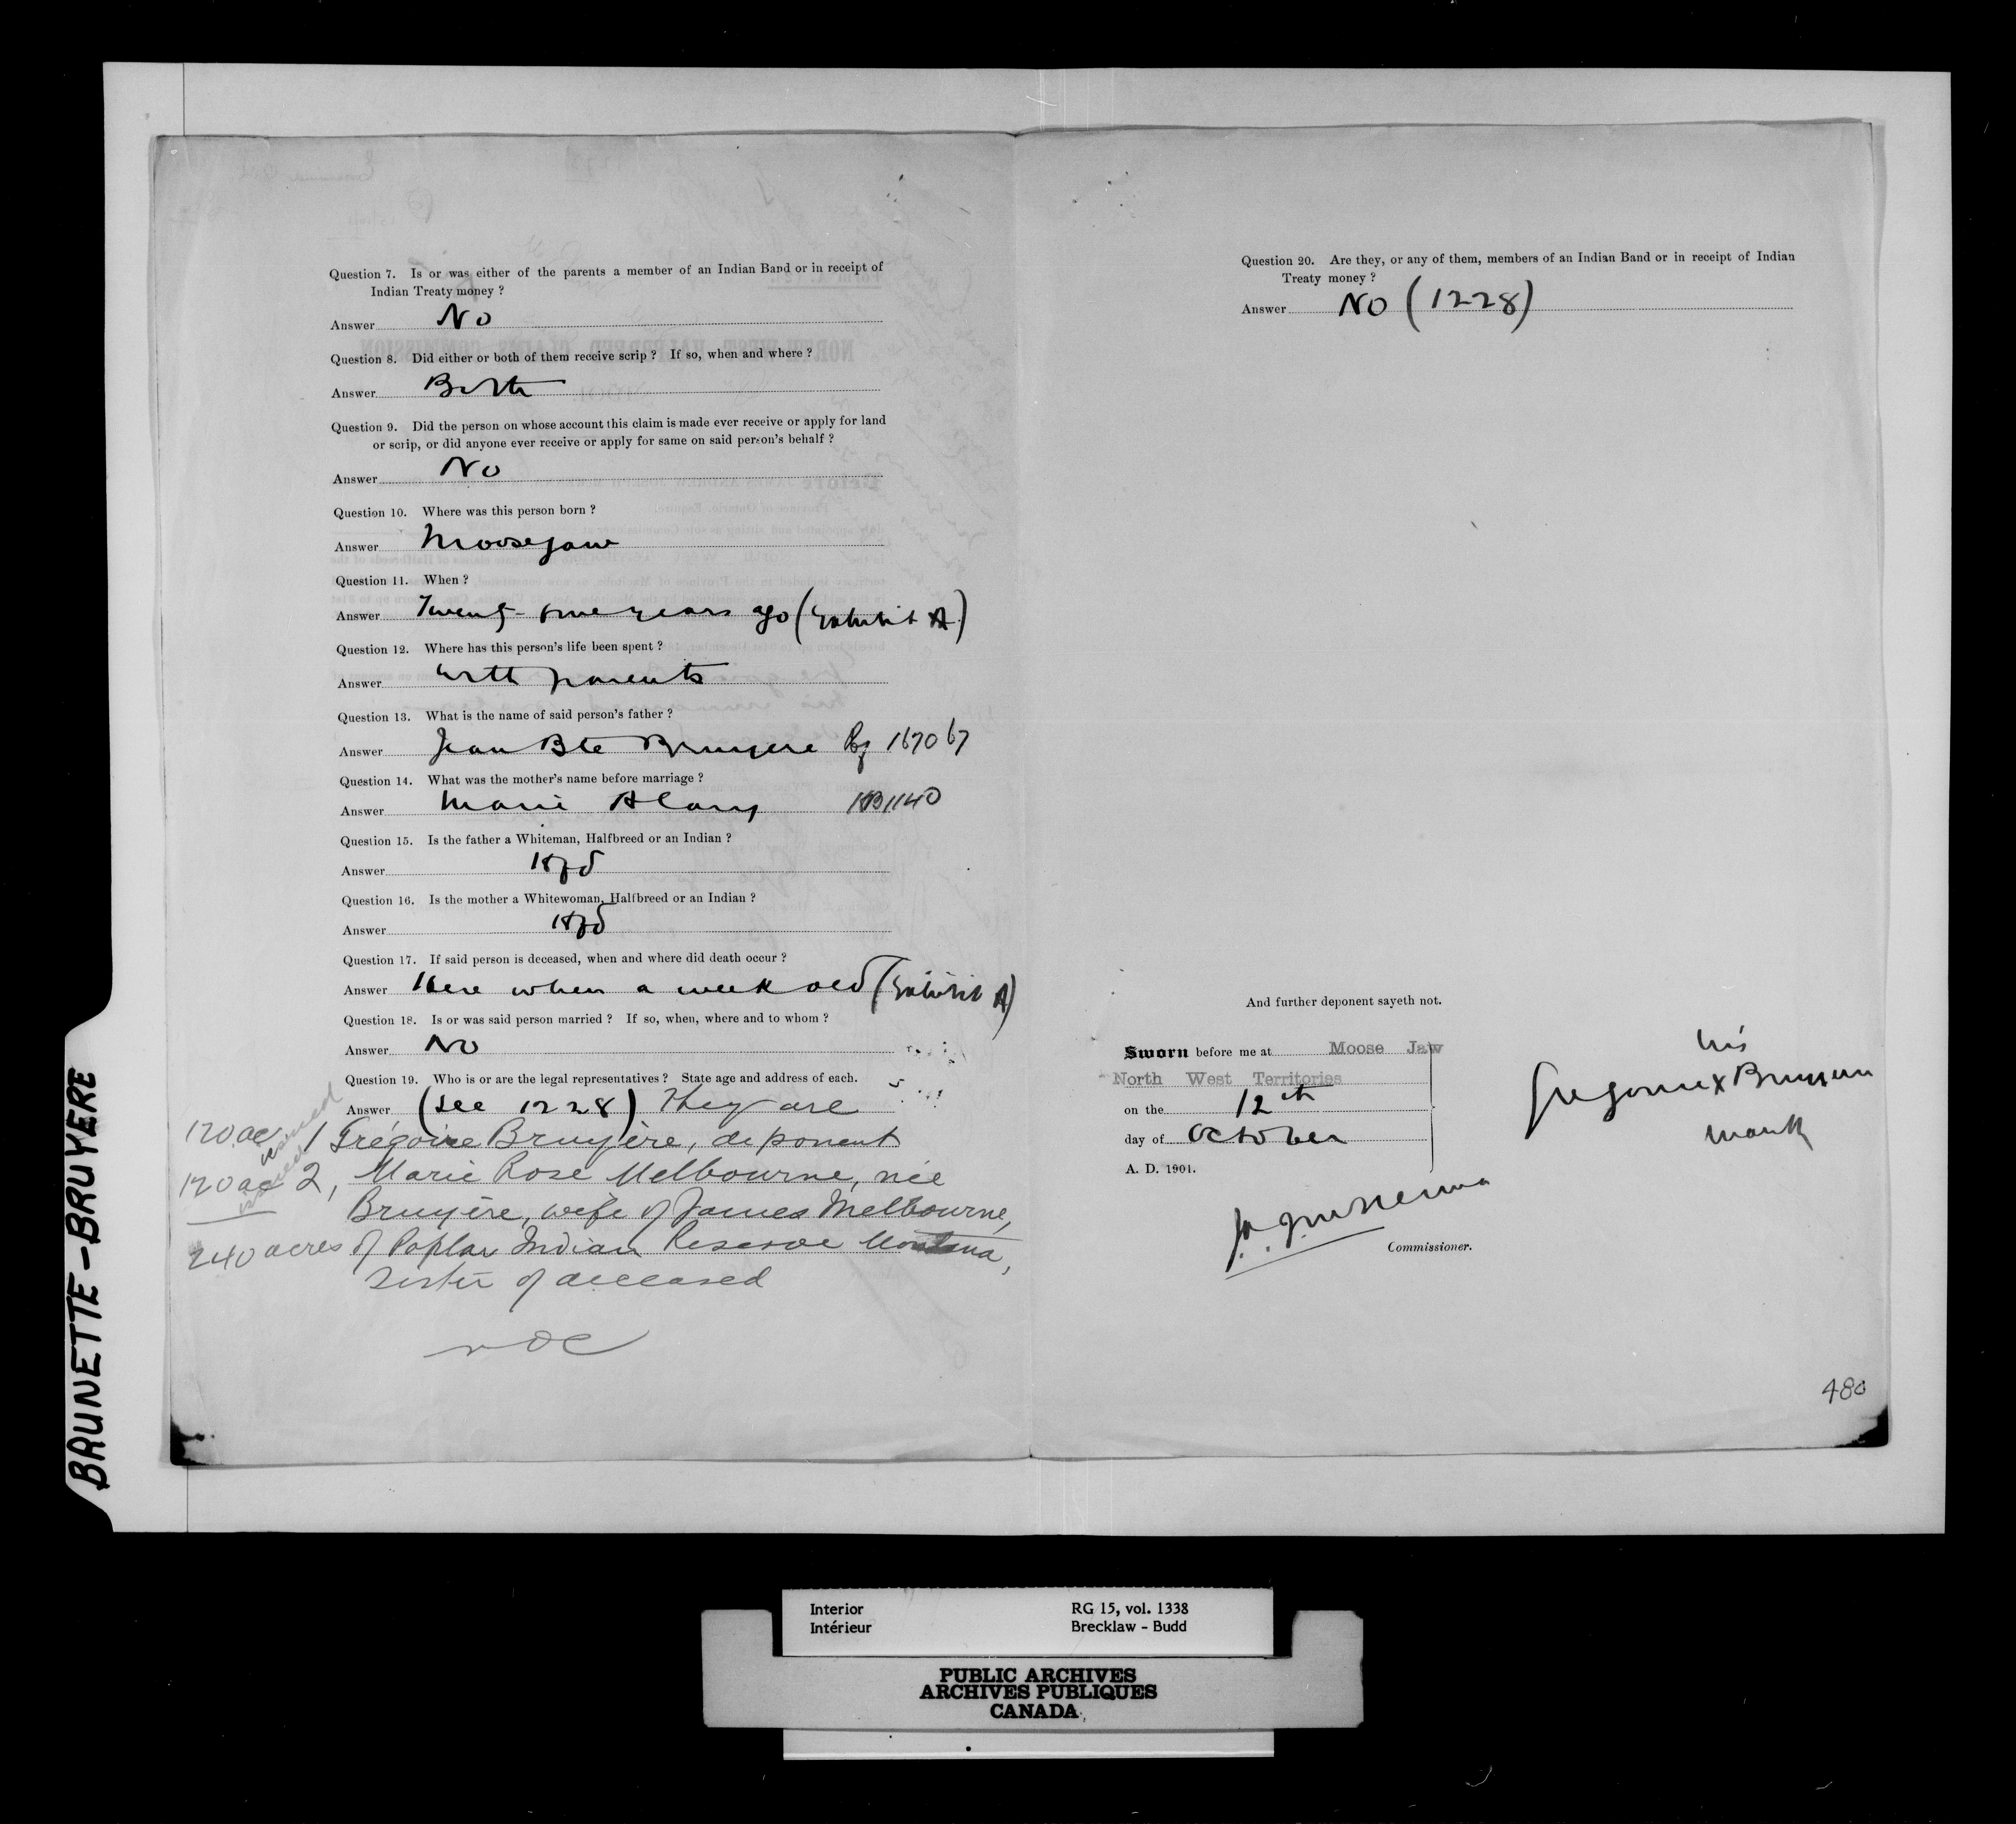 Question 7. Is or was either of the parents a member of an Indian Band or in receipt of
Indian Treaty money ?
Answer No
Question 8. Did either or both of them receive scrip ? If so, when and where ?
Answer Both
Question 9. Did the person on whose account this claim is made ever receive or apply for land
or scrip, or did anyone ever receive or apply for same on said person's behalf ?
Answer No
Question 10. Where was this person born ?
Answer Moosejaw
Question 11. When ?
Answer Twenty- years ago (Exhibit A)
Question 12. Where has this person's life been spent ?
Answer with parents
Question 13. What is the name of said person's father ?
Answer Jean Bte Bruyere 167067
Question 14. What was the mother's name before marriage ?
Answer Marie Alary HB1140
Question 15. Is the father a Whiteman, Halfbreed or an Indian ?
Answer Hfd
Question 16. Is the mother a Whitewoman, Halfbreed or an Indian ?
Answer Hfd
Question 17. If said person is deceased, when and where did death occur ?
Answer Here when a week old (Exhibit A)
Question 18. Is or was said person married ? If so, when, where and to whom ?
Answer No
Question 19. Who is or are the legal representatives ? State age and address of each.
Answer (see 1228) They are
120 ac issued 1 Grégoire Bruyère, deponent
120 ac issued 2, Marie Rose Melbourne, née
Bruyère, wife of James Melbourne,
240 acres of Poplar Indian Reserve Montana,
Sister of deceased
Question 20. Are they, or any of them, members of an Indian Band or in receipt of Indian
Treaty money ?
Answer No (1228)
And further deponent sayeth not.
Sworn before me at Moose Jaw
North West Territories
on the 12th
day of October
A. D. 1901.
his
Gregoire x Bruyere
mark
Commissioner.
480
BRUNETTE - BRUYERE
Interior RG 15, vol. 1338
Intérieur Brecklaw - Budd
PUBLIC ARCHIVES
ARCHIVES PUBLIQUES
CANADA